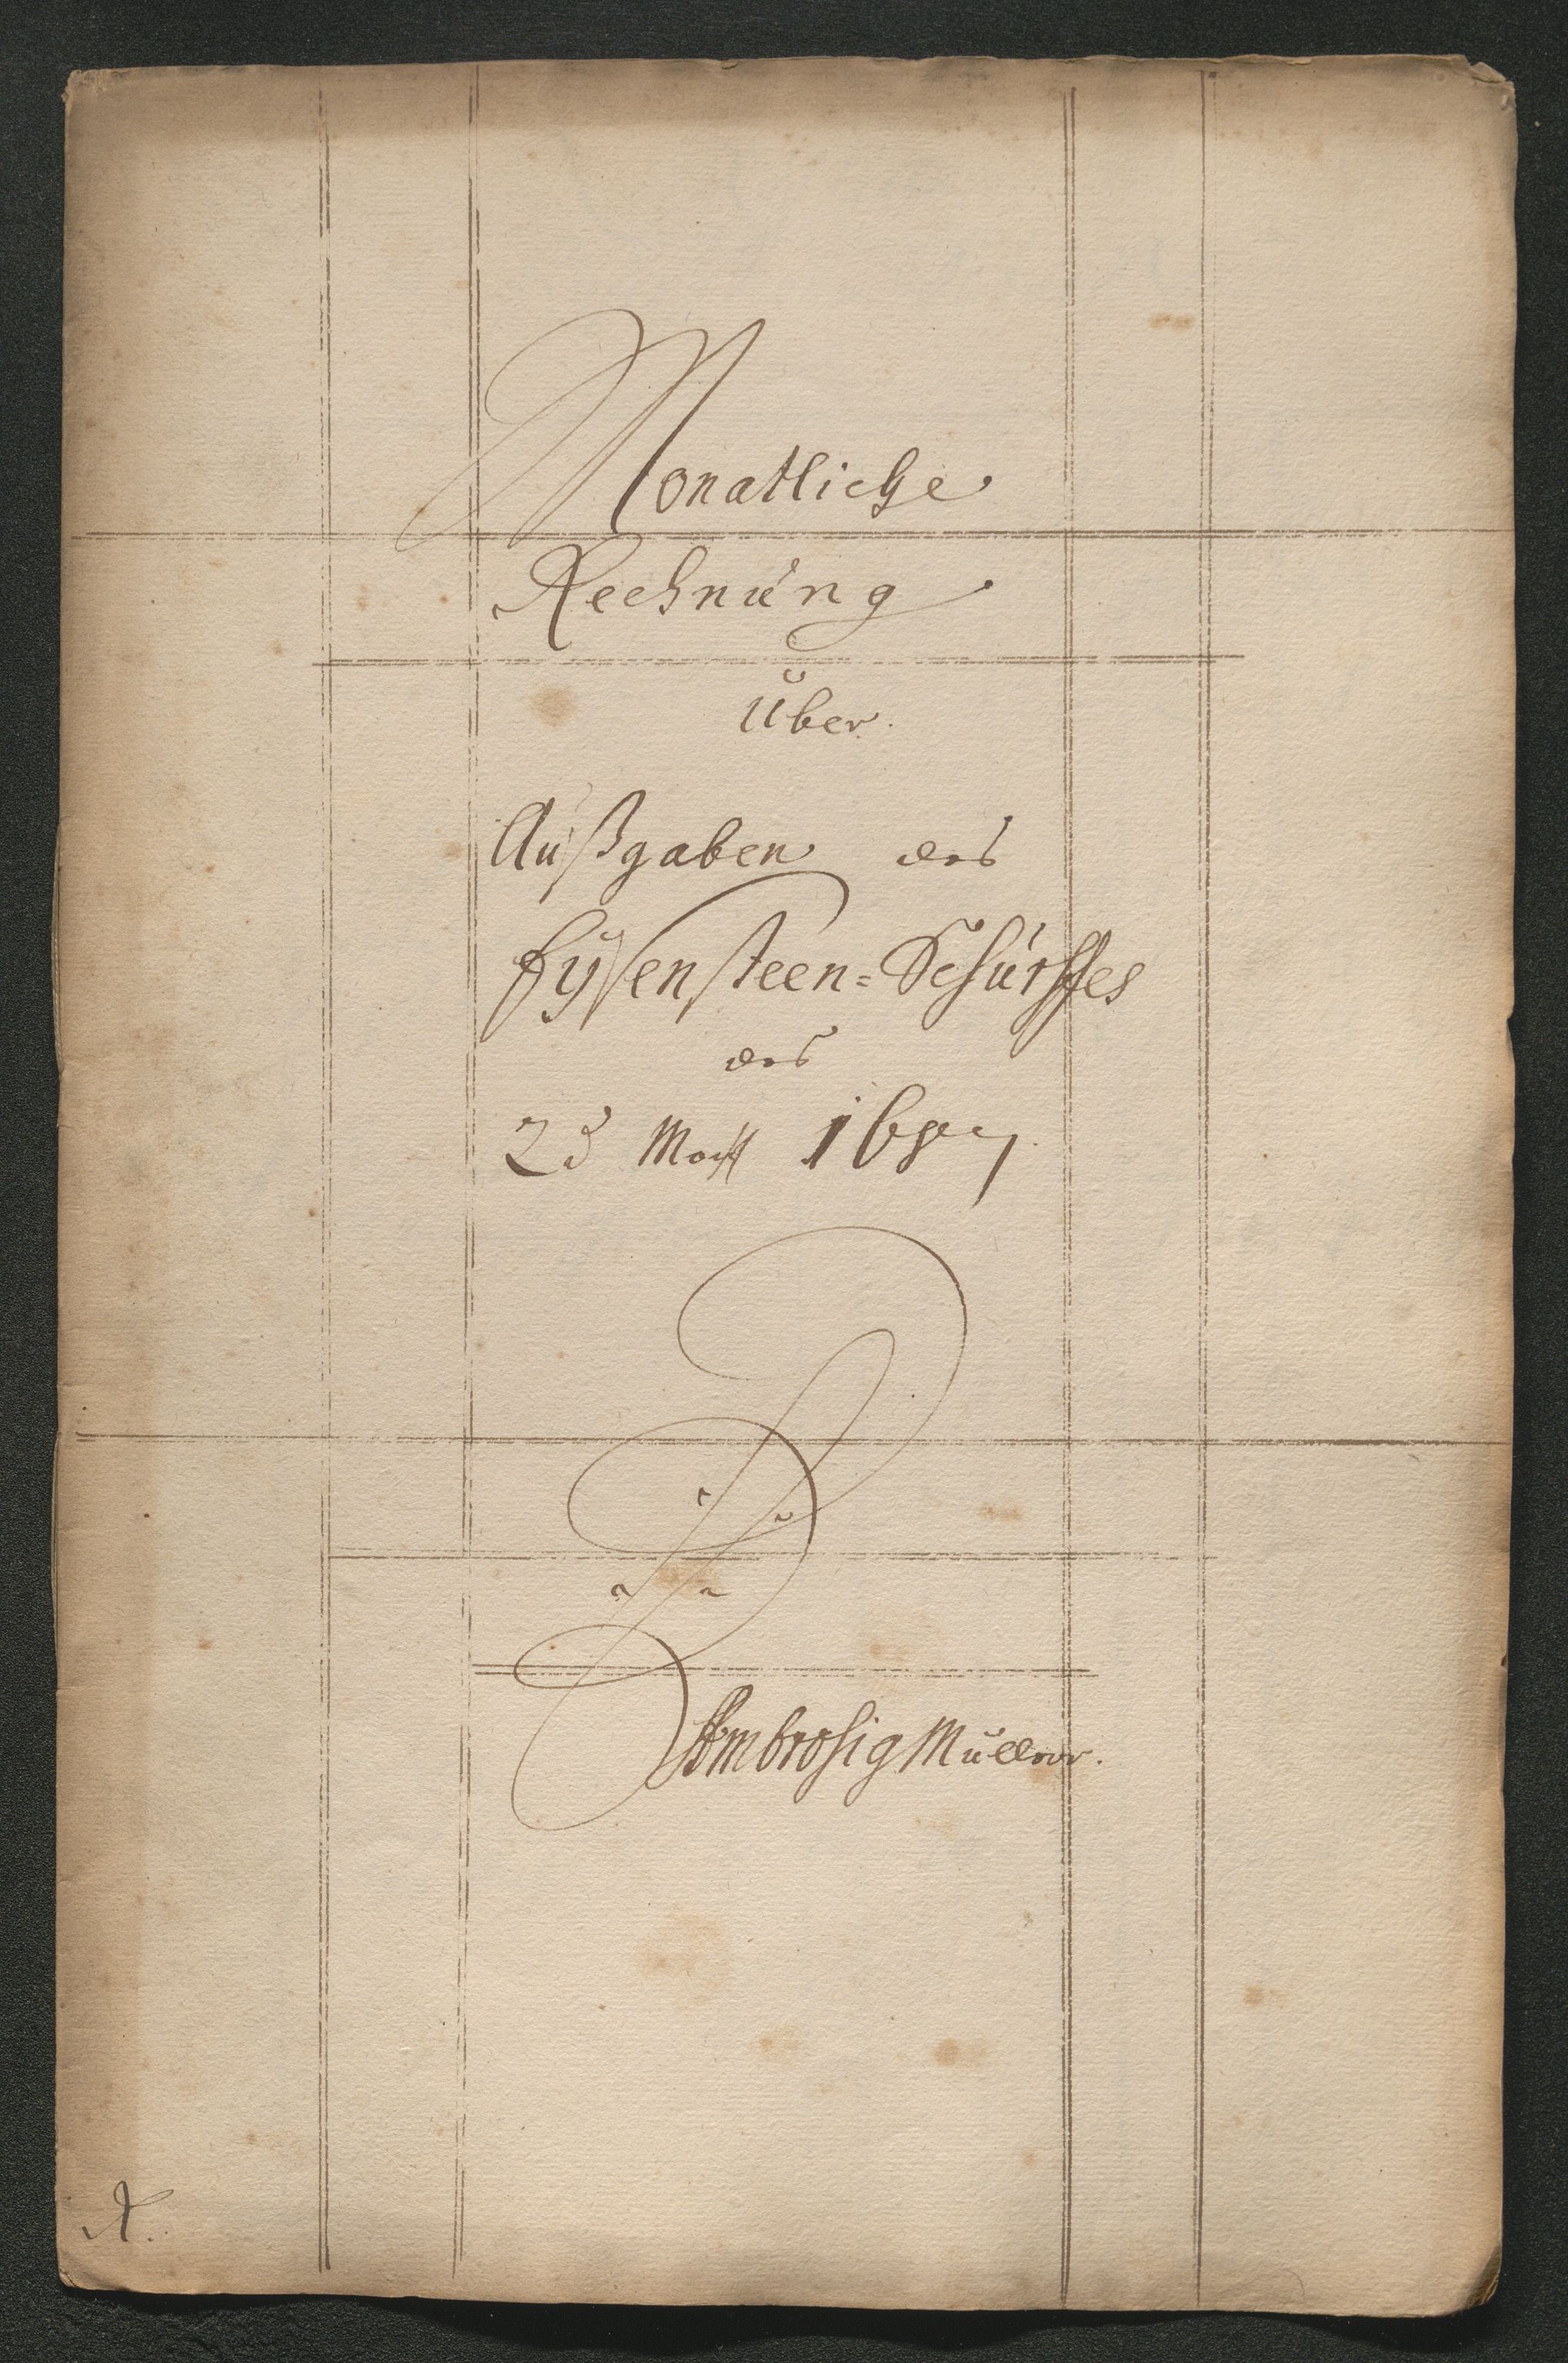 Monatliche
Rechnung
Über.
Außgaben des
Eysensteen=Schurffes
des
1687
Ambrosig Müller.